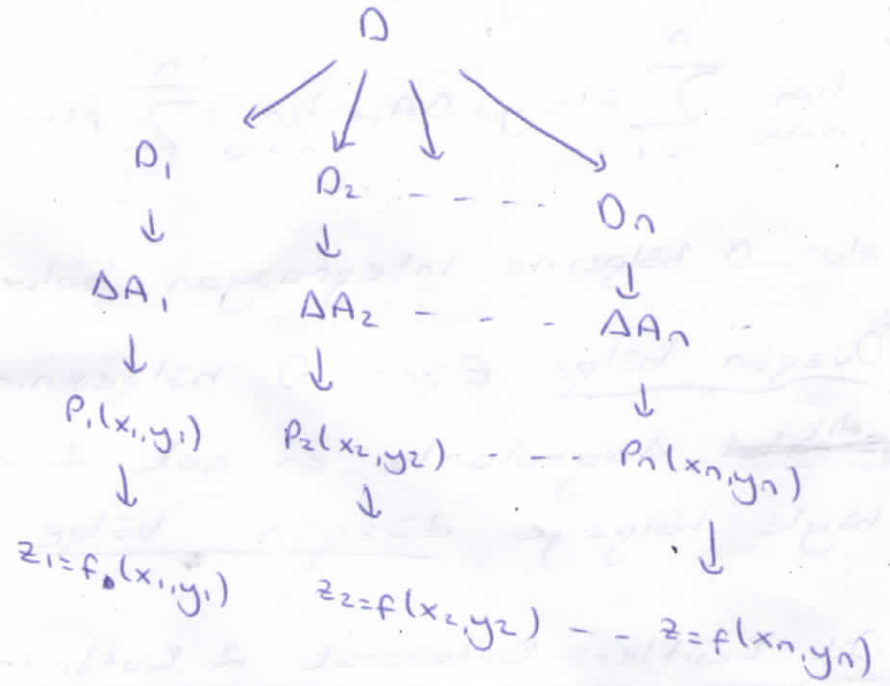 D
D₁ D₂ - - - - Dn
ΔA₁ ΔA₂ - - - ΔAn
P₁(x₁,y₁) P₂(x₂,y₂) - - - Pn(xn,yn)
z₁=f(x₁,y₁) z₂=f(x₂,y₂) - - z=f(xn,yn)